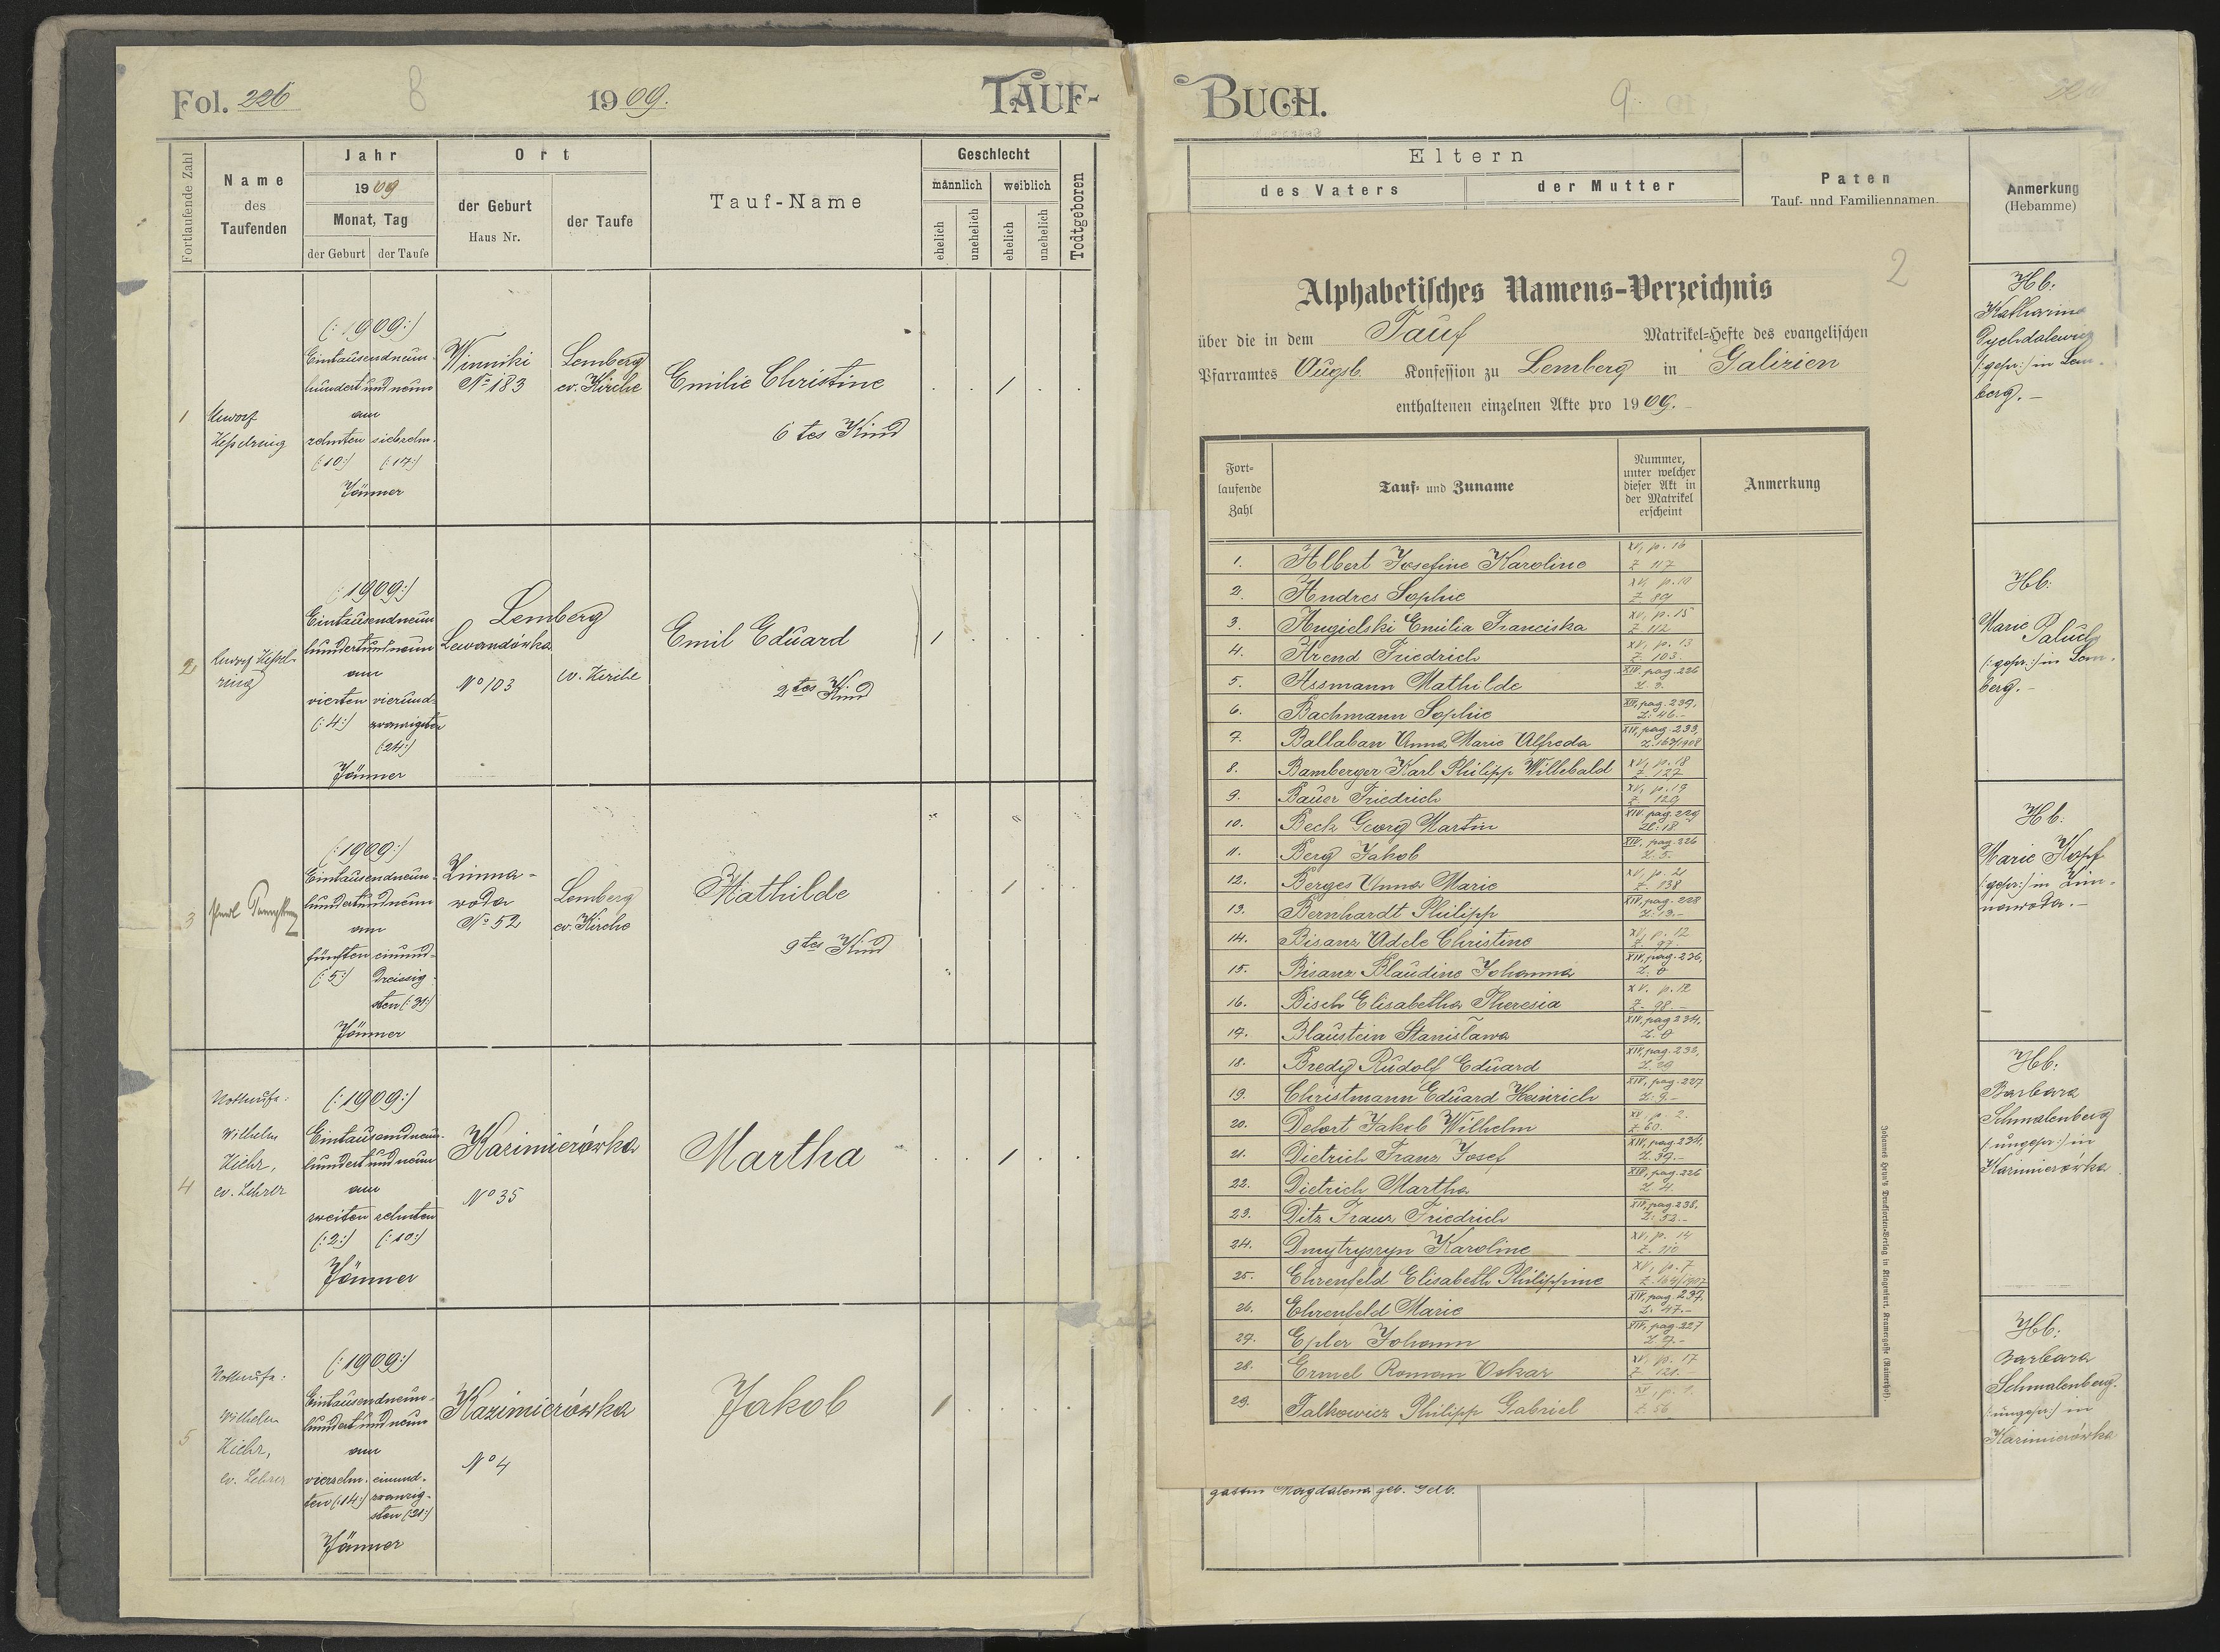 Fol. 226
8
1909.
TAUF-
Fortlaufende Zahl
Name
des
Taufenden
Jahr
1909
Monat, Tag
der Geburt
der Taufe
Ort
der Geburt
Haus Nr.
der Taufe
Tauf-Name
Geschlecht
männlich
weiblich
ehelich
unehelich
ehelich
unehelich
Todtgeboren
1
(:1909:)
Eintausendneun-
hundert und neun
am
zehnten siebzehn.
(:10:) (:17:)
Jänner
Winniki
No 183
Lemberg
ev. Kirche
Emilie Christine
6 tes Kind
2
(:1909:)
Eintausendneun
hundert und neun
am
vierten vierund-
(:4:) zwanzigsten
(:24:)
Jänner
Lemberg
Lewandówka
No 103
ev. Kirche
Emil Eduard
2tes Kind
3
(:1909:)
Eintausendneun-
hundert und neun
am
fünften einund-
(:5:) dreissig-
sten (:31:)
Jänner
Zimna-
woda
No 52
Lemberg
ev. Kirche
Mathilde
9tes Kind
4
Nottaufe:
Wilhelm
Kiehr,
ev. Lehrer
(:1909:)
Eintausendneun-
hundert und neun
am
zweiten zehnten
(:2:) (:10:)
Jänner
Kazimierówka
No 35
Martha
5
Nottaufe:
Wilhelm
Kiehr,
ev. Lehrer
(:1909:)
Eintausendneun-
hundert und neun
am
vierzehn- einund-
ten (:14:) zwanzig-
sten (:21:)
Jänner
Kazimierówka
No 4
Jakob
BUCH.
9.
Eltern
des Vaters
der Mutter
Paten
Tauf- und Familiennamen.
Anmerkung
(Hebamme)
Hb:
Katharina
(:gepr:) in Lem-
berg.-
Hb:
Marie Paluch
(:gepr:) in Lem-
berg.-
Hb:
Marie Kopf
(:gepr:) in Zim-
nawoda.-
Hb:
Barbara
Schmalenberg
(:ungepr:) in
Kazimierówka
Hb:
Barbara
Schmalenberg.
(:ungepr:) in
Kazimierówka
2
Alphabetisches Namens-Verzeichnis
über die in dem Tauf Matrikel-Hefte des evangelischen
Pfarramtes Augsb. Konfession zu Lemberg in Galizien
enthaltenen einzelnen Akte pro 1909.-
Fort-
laufende
Zahl
Tauf- und Zuname
Nummer,
unter welcher
dieser Akt in
der Matrikel
erscheint
Anmerkung
1. Albert Josefine Karoline XV, p. 16 Z. 117
2. Andres Sophie XV, p. 10 Z. 89
3. Angielski Emilia Franciska XV, p. 15 Z. 112
4. Arend Friedrich XV, p. 13 Z. 103.
5. Assmann Mathilde XIV. pag. 226 Z. 3.
6. Bachmann Sophie XIV, pag. 237, Z. 46.-
7. Ballaban Anna Marie Alfreda XIV, pag. 233, Z. 163/1908
8. Bamberger Karl Philipp Willebald XV, p. 18 Z. 127
9. Bauer Friedrich XV, p. 19 Z. 129
10. Beck Georg Martin XIV pag. 229 Z. 18.
11. Berg Jakob XIV, pag. 226 Z. 5.
12. Berges Anna Marie XV, p. 21 Z. 138
13. Bernhardt Philipp XIV, pag. 228 Z. 13.-
14. Bisanz Adele Christine XV, p. 12 Z. 97.
15. Bisanz Klaudine Johanna XIV, pag. 236, Z. 0
16. Bisch Elisabetha Theresia XV. p. 12 Z. 98.-
17. Blaustein Stanisława XIV, pag 234, Z. 0
18. Bredy Rudolf Eduard XIV, pag. 232, Z. 29
19. Christmann Eduard Heinrich XIV, pag. 227 Z. 9.-
20. Debort Jakob Wilhelm XV p. 2. Z. 60.
21. Dietrich Franz Josef XIV, pag. 234, Z. 39.-
22. Dietrich Martha XIV, pag. 226 Z. 4.
23. Ditz Franz Friedrich XIV, pag. 238, Z. 52.-
24. Dmytryszyn Karoline XV, p. 14 Z. 110
25. Ehrenfeld Elisabeth Philippine XV, p. 7 Z. 164/1907
26. Ehrenfeld Marie XIV, pag. 237, Z. 47.-
27. Epler Johann XIV, pag. 227 Z. 7.-
28. Ermel Roman Oskar XV, p. 17 Z. 121.-
29. Falkowicz Philipp Gabriel XV, p. 1. Z. 56
Johannes Heyn's Drucksorten-Verlag in Klagenfurt, Kramergasse (Rainerhof).
gattin Magdalena geb. Gelb.